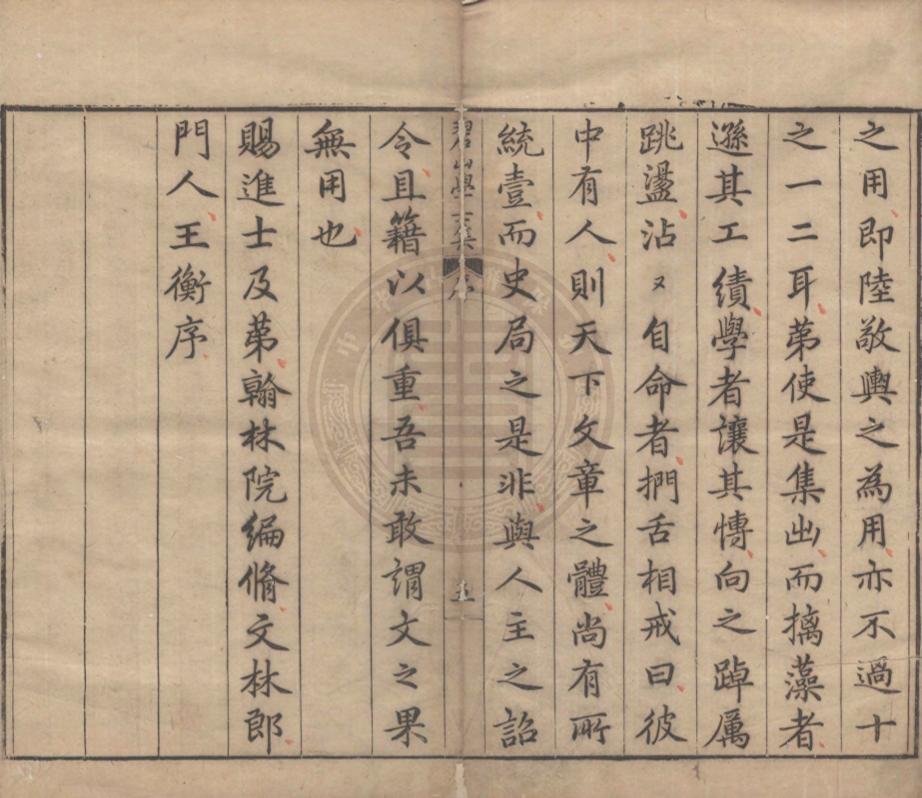 之用即陸敬輿之為用亦不過十
之一二耳第使是集出而摛藻者
遜其工績學者讓其愽向之踔厲
跳盪沾又自命者捫舌相戒曰彼
中有人則天下文章之體尚有所
統壹而史局之是非與人主之詔
碧山學士集 序 五
令且籍以俱重吾未敢謂文之果
無用也
賜進士及苐翰林院編脩文林郎
門人王衡序